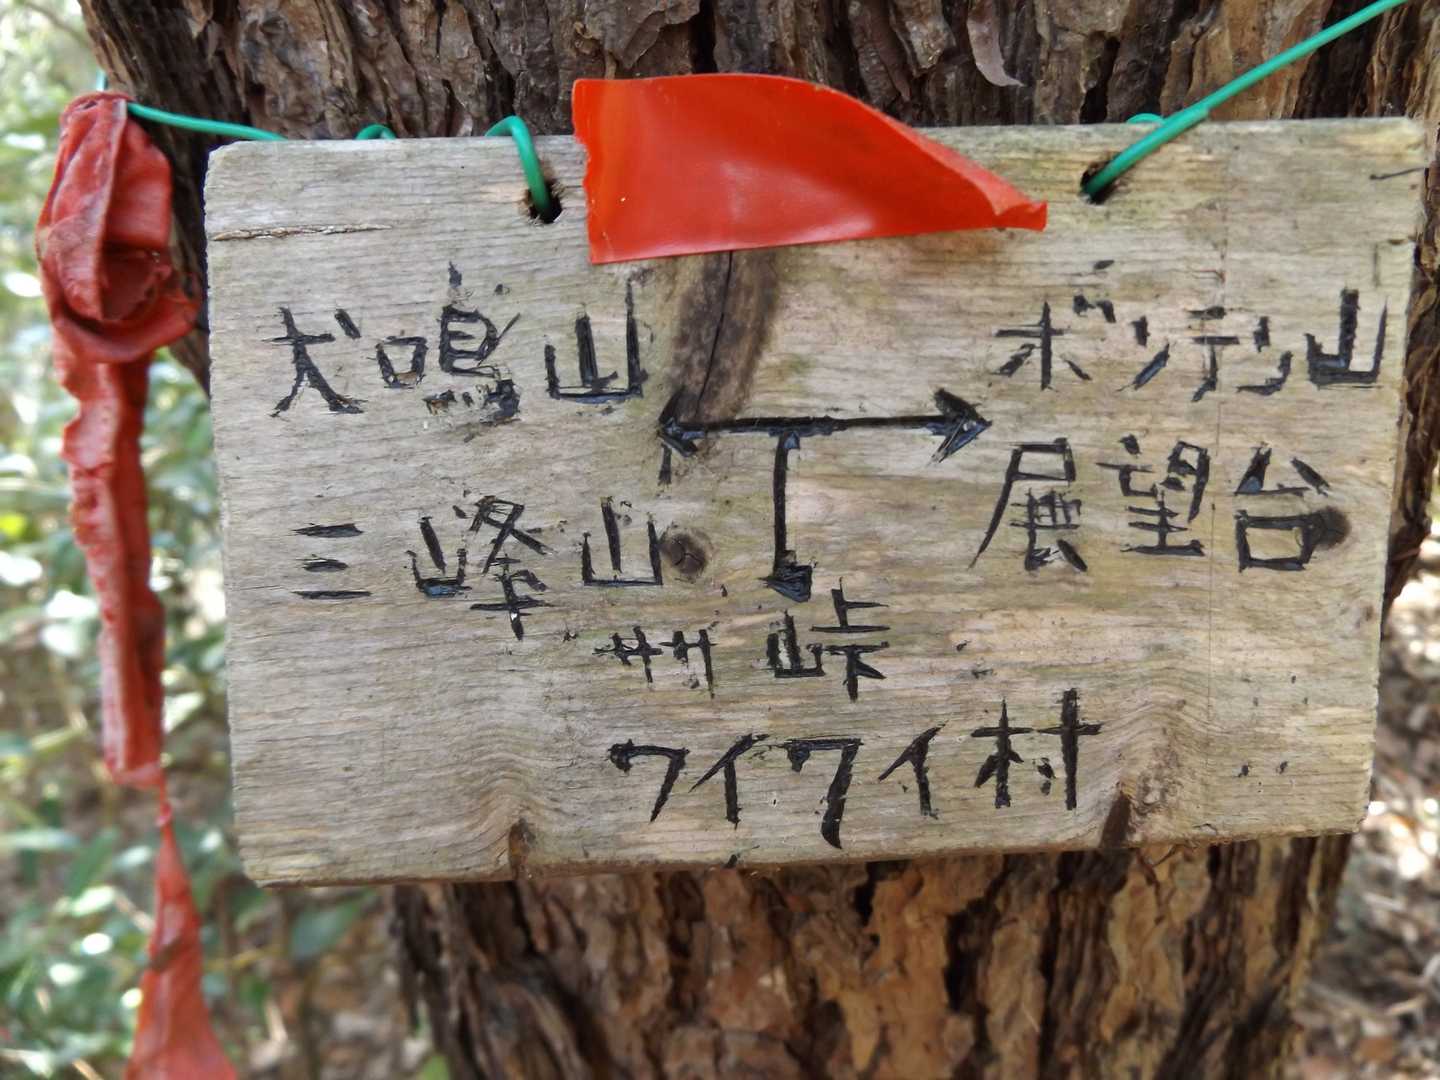 犬鳴山
三峰山
ボンテン山
展望台
ササ峠
ワイワイ村